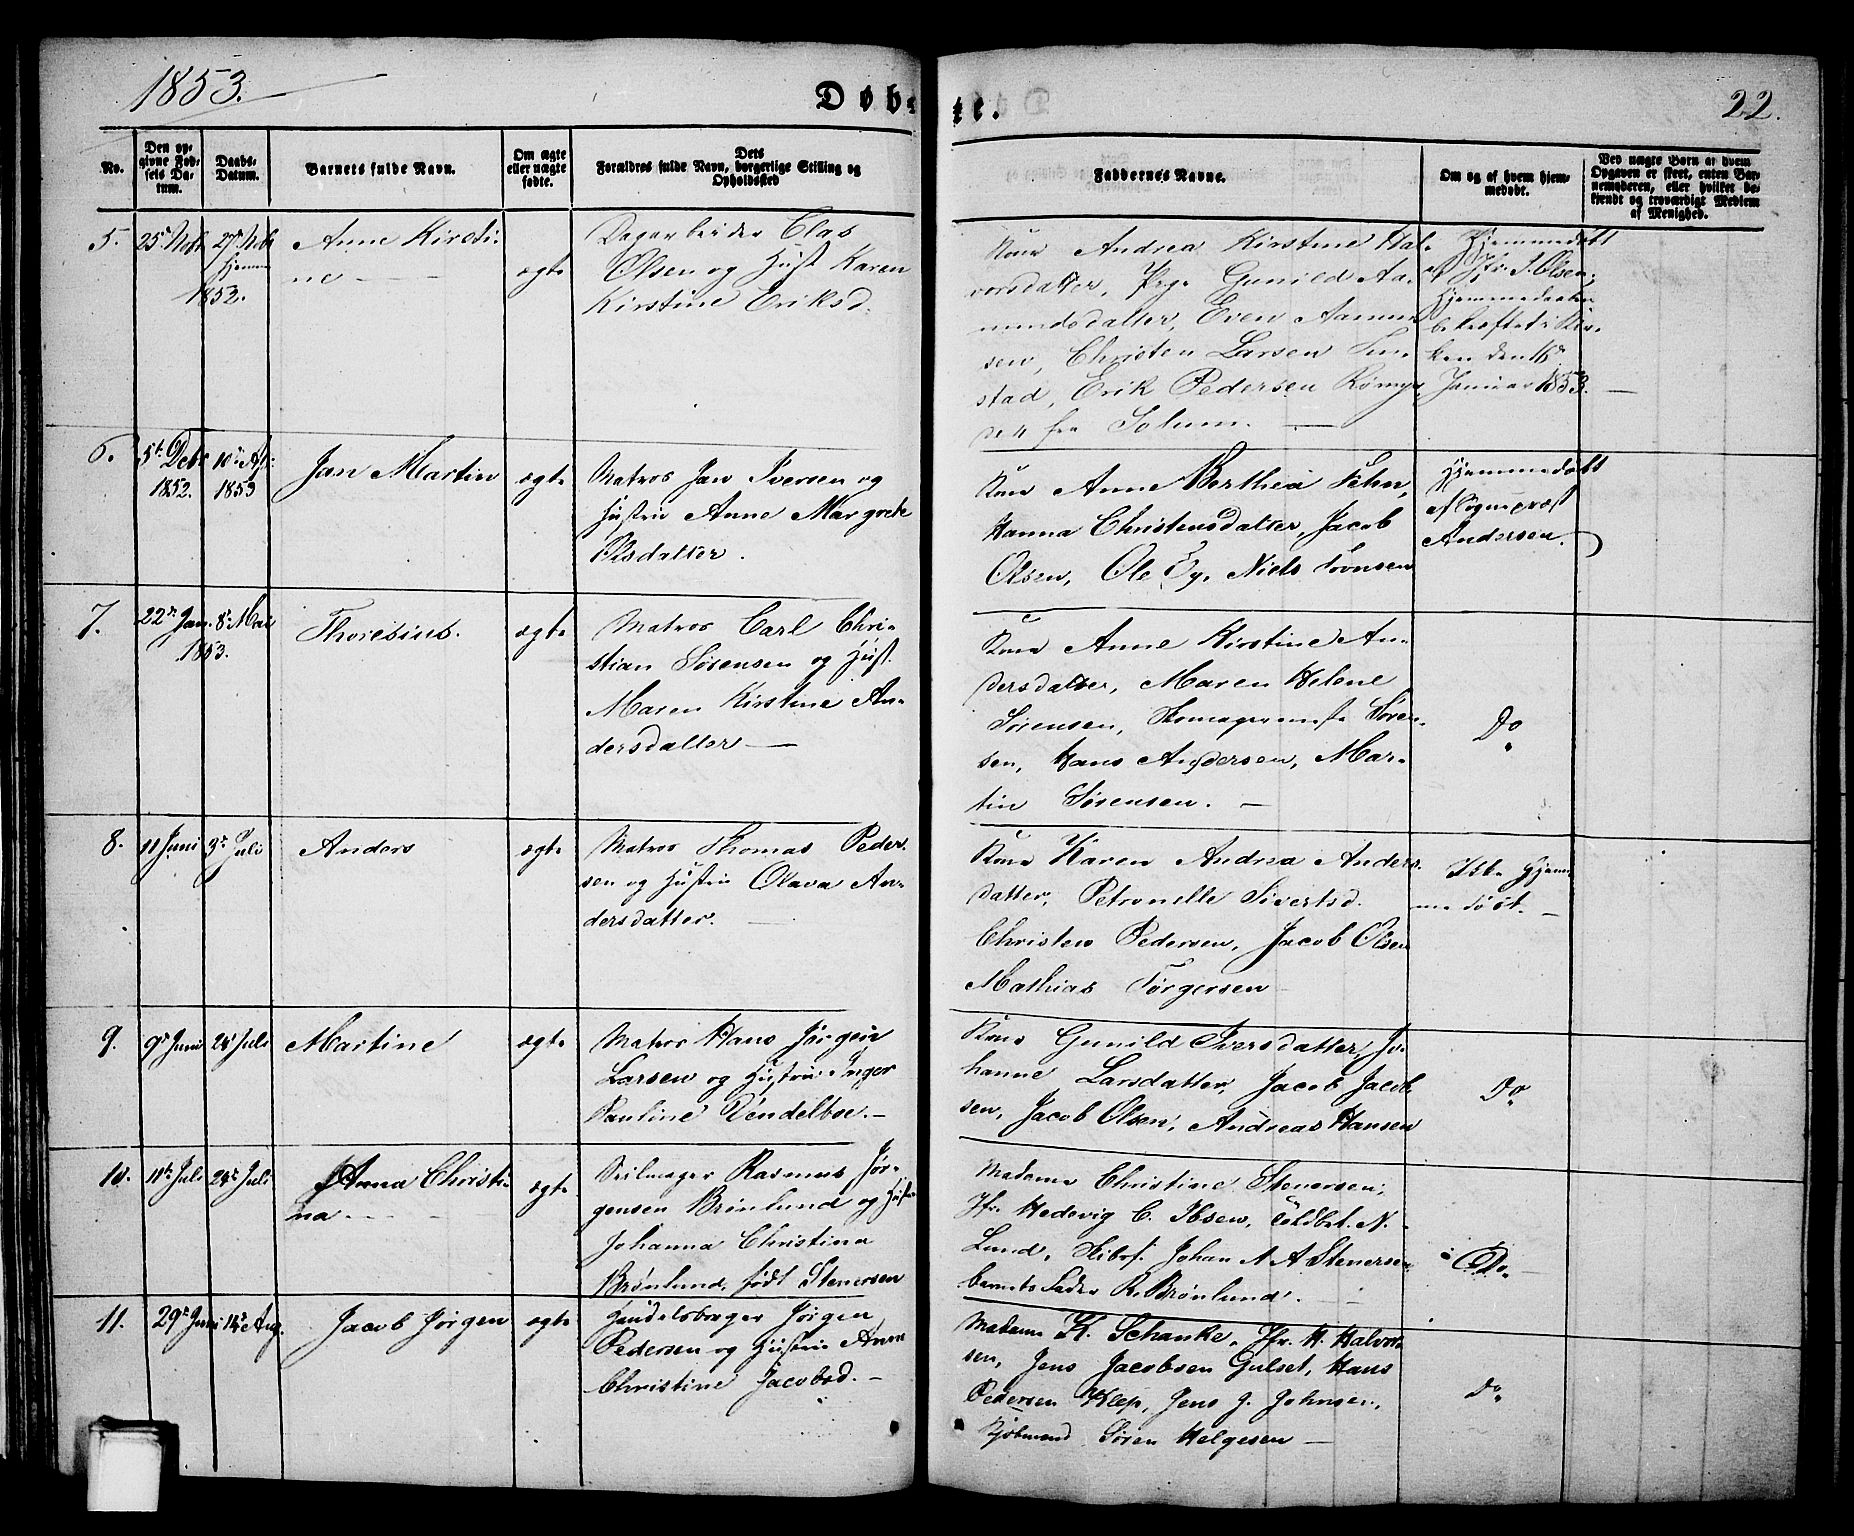 1853.
Døbte.
22.
No.
Den opgivne Fødsels Datum.
Daabs-Datum.
Barnets fulde Navn.
Om ægte eller uægte fødte.
Dets Forældres fulde Navn, borgerlige Stilling og Opholdssted
Faddernes Navne.
Om og af hvem hjemmedøbt.
Ved uægte Børn af hvem Opgaven er skeet, enten Barnemoderen, eller hvilket bekjendt og troværdigt Medlem af Menighed.
5.
25de Nobr
27de Nobr
hjemme
1852.
Anne Kirsti-
ne
ægte
Dagarbeider Clas
Olsen og Hust Karen
Kirstine Eriksd.
Kone Andrea Kirstine Hal-
vorsdatter, Pige Gunild Aa-
mundsdatter, Even Aamund-
sen, Christen Larsen
stad, Erik Pedersen
fra Solum.
Hjemmedøbt
af Jfr. J. Olsen,
Hjemmedaaben
bekræftet i Kir-
ken den 16de
Januar 1853.
6.
5te Debr
1852.
10de Apr.
1853
Jan Martin
ægte
Matros Jan Iversen og
Hustru Anne Margrete
Olsdatter.
Kone Anne Berthea Fehn,
Hanna Christensdatter, Jacob
Olsen, Ole Ey, Niels
Hjemmedøbt
af Sognepræst
Andersen.
7.
22de Jan.
8de Mai
1853.
Thoresius.
ægte
Matros Carl Chri-
stian Sørensen og Hust.
Maren Kirstine An-
dersdatter
Kone Anne Kirstine An-
dersdatter, Maren Helene
Sørensen, Skomagermest. Søren-
sen, Hans Andersen, Mar-
tin Sørensen.
Do
8.
11 Juni
3de Juli
Anders
ægte
Matros Thomas Peder-
sen og Hustru Olava An-
dersdatter.
Kone Karen Andrea Anders-
datter, Petronelle Sivertsd.
Christen Pedersen, Jacob Olsen
Mathias Törgersen
Ikke hjem-
medöbt.
9.
9de Juni
24 Juli
Martine
ægte
Matros Hans Jörgen
Larsen og Hustru Inger
Pauline Rendelboe.
Kone Gunild Iversdatter, Jo-
hanne Larsdatter, Jacob Jacob-
sen, Jacob Olsen, Andreas Hansen
Do
10.
11te Juli
24de Juli
Anna Christi-
na
ægte
Seilmager Rasmus Jør-
gensen Brönlund og Hustru
Johanna Christina
Brönlund, født Stenersen
Madame Christine Stenersen,
Jfr. Hedevig C. Ibsen, Toldbet. N.
Lund, Skibsf. Johan N. A. Stenersen
barnets Fader R. Brönlund.
Do
11.
29de Juni
14de Aug.
Jacob Jørgen
ægte
Handelsborger Jørgen
Pedersen og Hustru Anne
Christine Jacobsd.
Madame K. Schanke, Jfr. H. Halvor-
sen, Jens Jacobsen Gulset, Hans
Pedersen Klep, Jens J. Johnsen,
Kjøbmand Sören Helgesen
Do